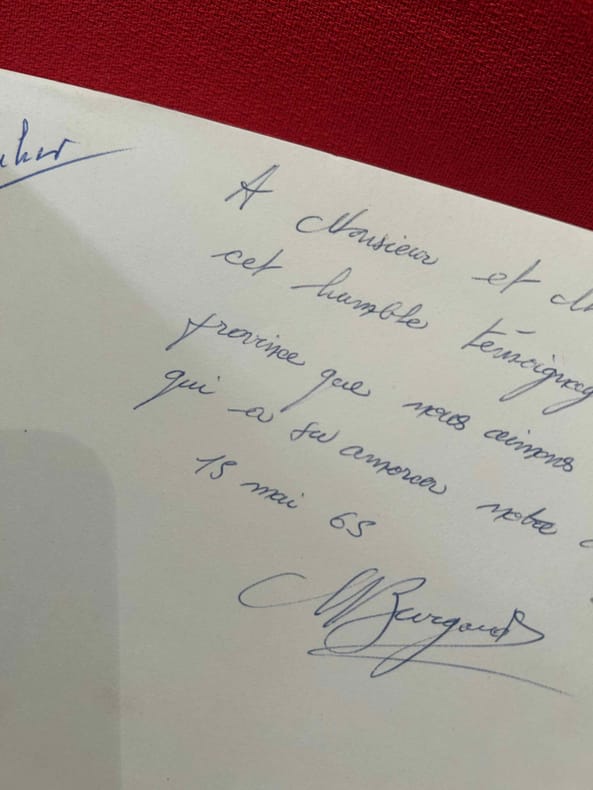 A Monsieur et M
cet humble témoignag
province que nous aimons
qui a su amorcer notre
15 mai 65
MBurgaud